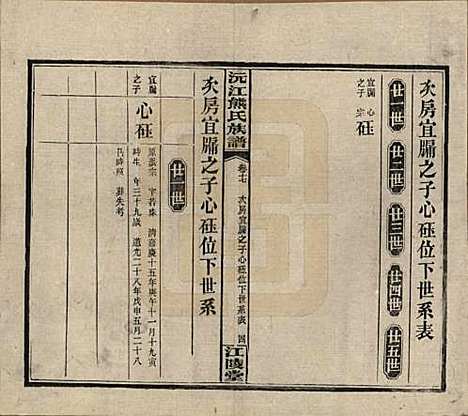 次房宜牖之子心砡位下世系表
廿一世
廿二世
廿三世
廿四世
廿五世
宜牖之子
心砡
宗
沅江熊氏族譜
卷十七
次房宜牖之子心砡位下世系表
四
江陵堂
次房宜牖之子心砡位下世系
廿一世
宜牖之子
心砡
原派宗
字若珠
清嘉慶十五年庚午十一月十九寅時生
年三十九歲
道光二十八年戊申五月二十八
時歿
葬失考